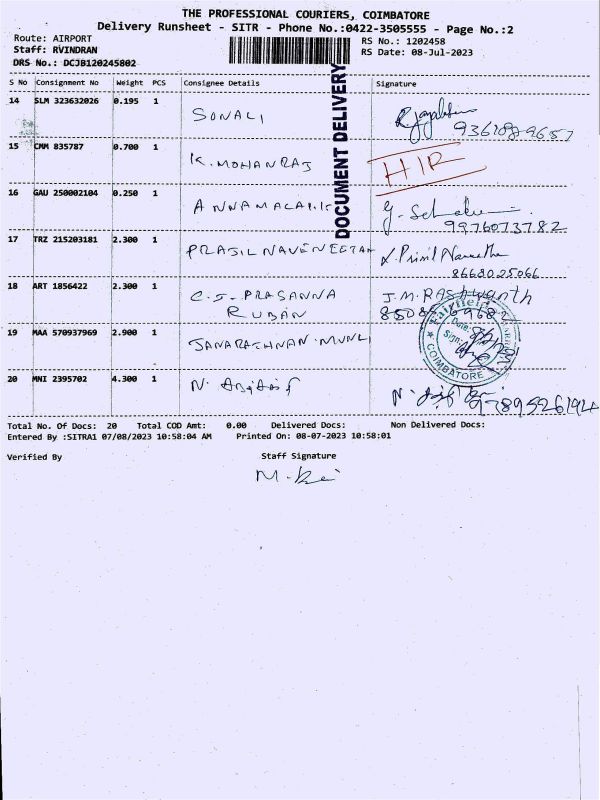 THE PROFESSIONAL COURIERS, COIMBATORE
Delivery Runsheet - SITR - Phone No.:0422-3505555 - Page No.:2
Route: AIRPORT
Staff: RVINDRAN
DRS No.: DCJB120245802
RS No.: 1202458
RS Date: 08-Jul-2023
DOCUMENT DELIVERY
S No Consignment No Weight PCS Consignee Details Signature
14 SLM 323632026 0.195 1 SONALI
15 CMM 835787 0.700 1 K. MOHANRAJ HIR
16 GAU 250002104 0.250 1
9976073782
17 TRZ 215203181 2.300 1
8668025066
18 ART 1856422 2.300 1 C.J. PRASANNA
RUBAN
19 MAA 570937969 2.900 1
Fairfield
Date:
Sign:
COIMBATORE
20 MNI 2395702 4.300 1
Total No. Of Docs: 20 Total COD Amt: 0.00 Delivered Docs: Non Delivered Docs:
Entered By :SITRA1 07/08/2023 10:58:04 AM Printed On: 08-07-2023 10:58:01
Verified By Staff Signature